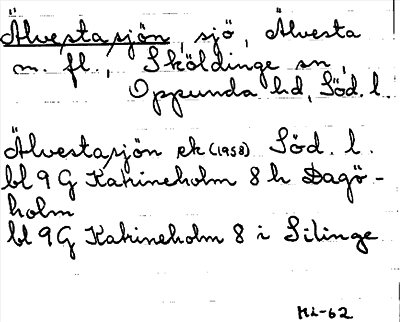 Älvestasjön, sjö, Älvesta
m. fl., Sköldinge sn,
Oppunda hd, Söd. l.
Älvestasjön rk (1958) Söd. l.
bl 9G Katrineholm 8 h Dagö-
holm
bl 9G Katrineholm 8 i Silinge
HL-62